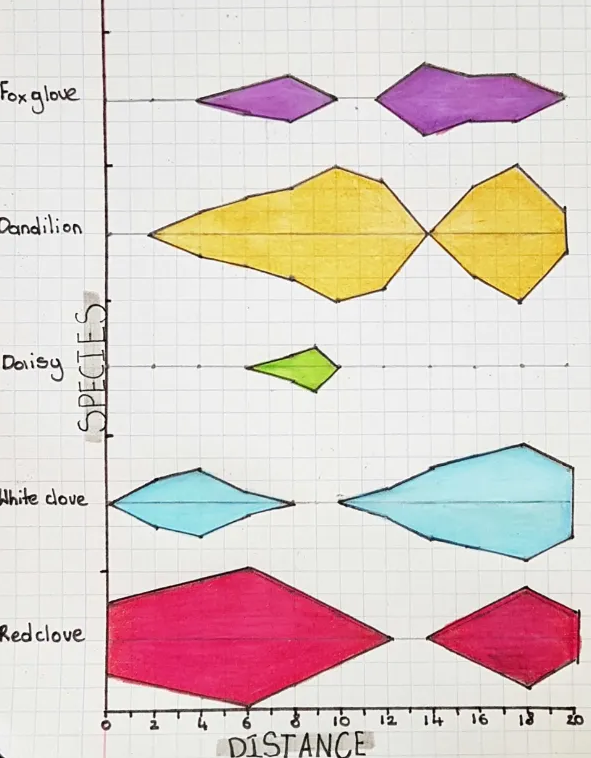 Foxglove
Dandilion
Daisy
White clove
Red clove
SPECIES
0 2 4 6 8 10 12 14 16 18 20
DISTANCE